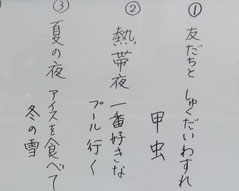 ① 友だちと しゅくだいわすれ
甲虫
② 熱帯夜 一番好きな
プール行く
③ 夏の夜 アイスを食べて
冬の雪